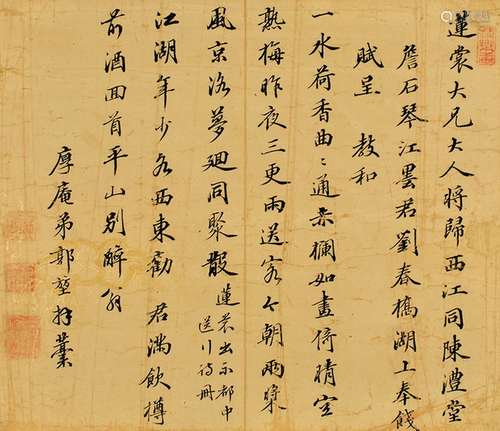 蓮裳大兄大人將歸西江同陳澧堂
詹石琴江雲君劉春橋湖上奉餞
賦呈 教和
一水荷香曲〻通赤欄如畫倚晴空
熟梅昨夜三更雨送客今朝兩槳
風京洛夢迴同聚散蓮裳出示都中送行詩冊
江湖年少各西東勸君滿飲樽
前酒回首平山別醉翁
厚庵弟郭堃拜藁